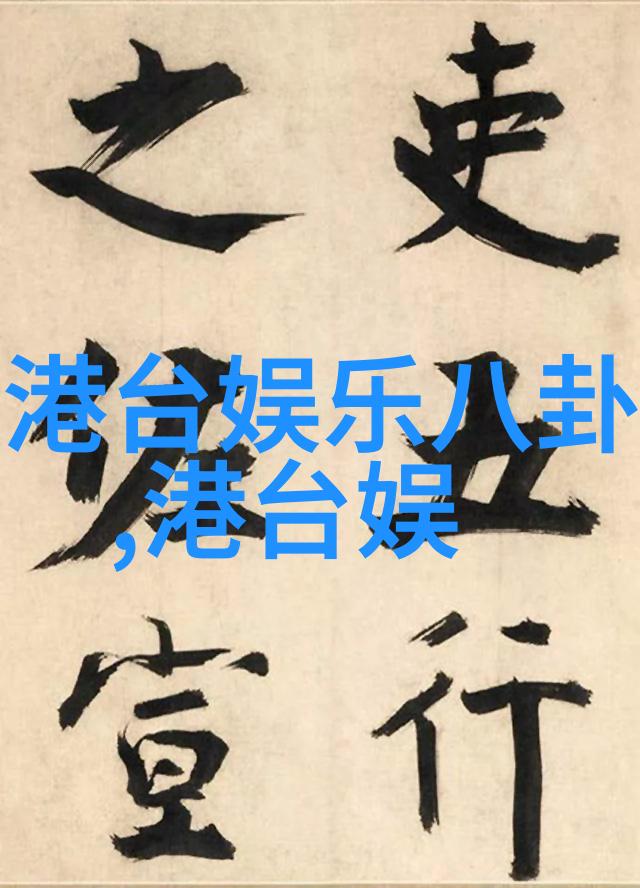 港台娱乐八卦
,港台娱
吏行
之宣